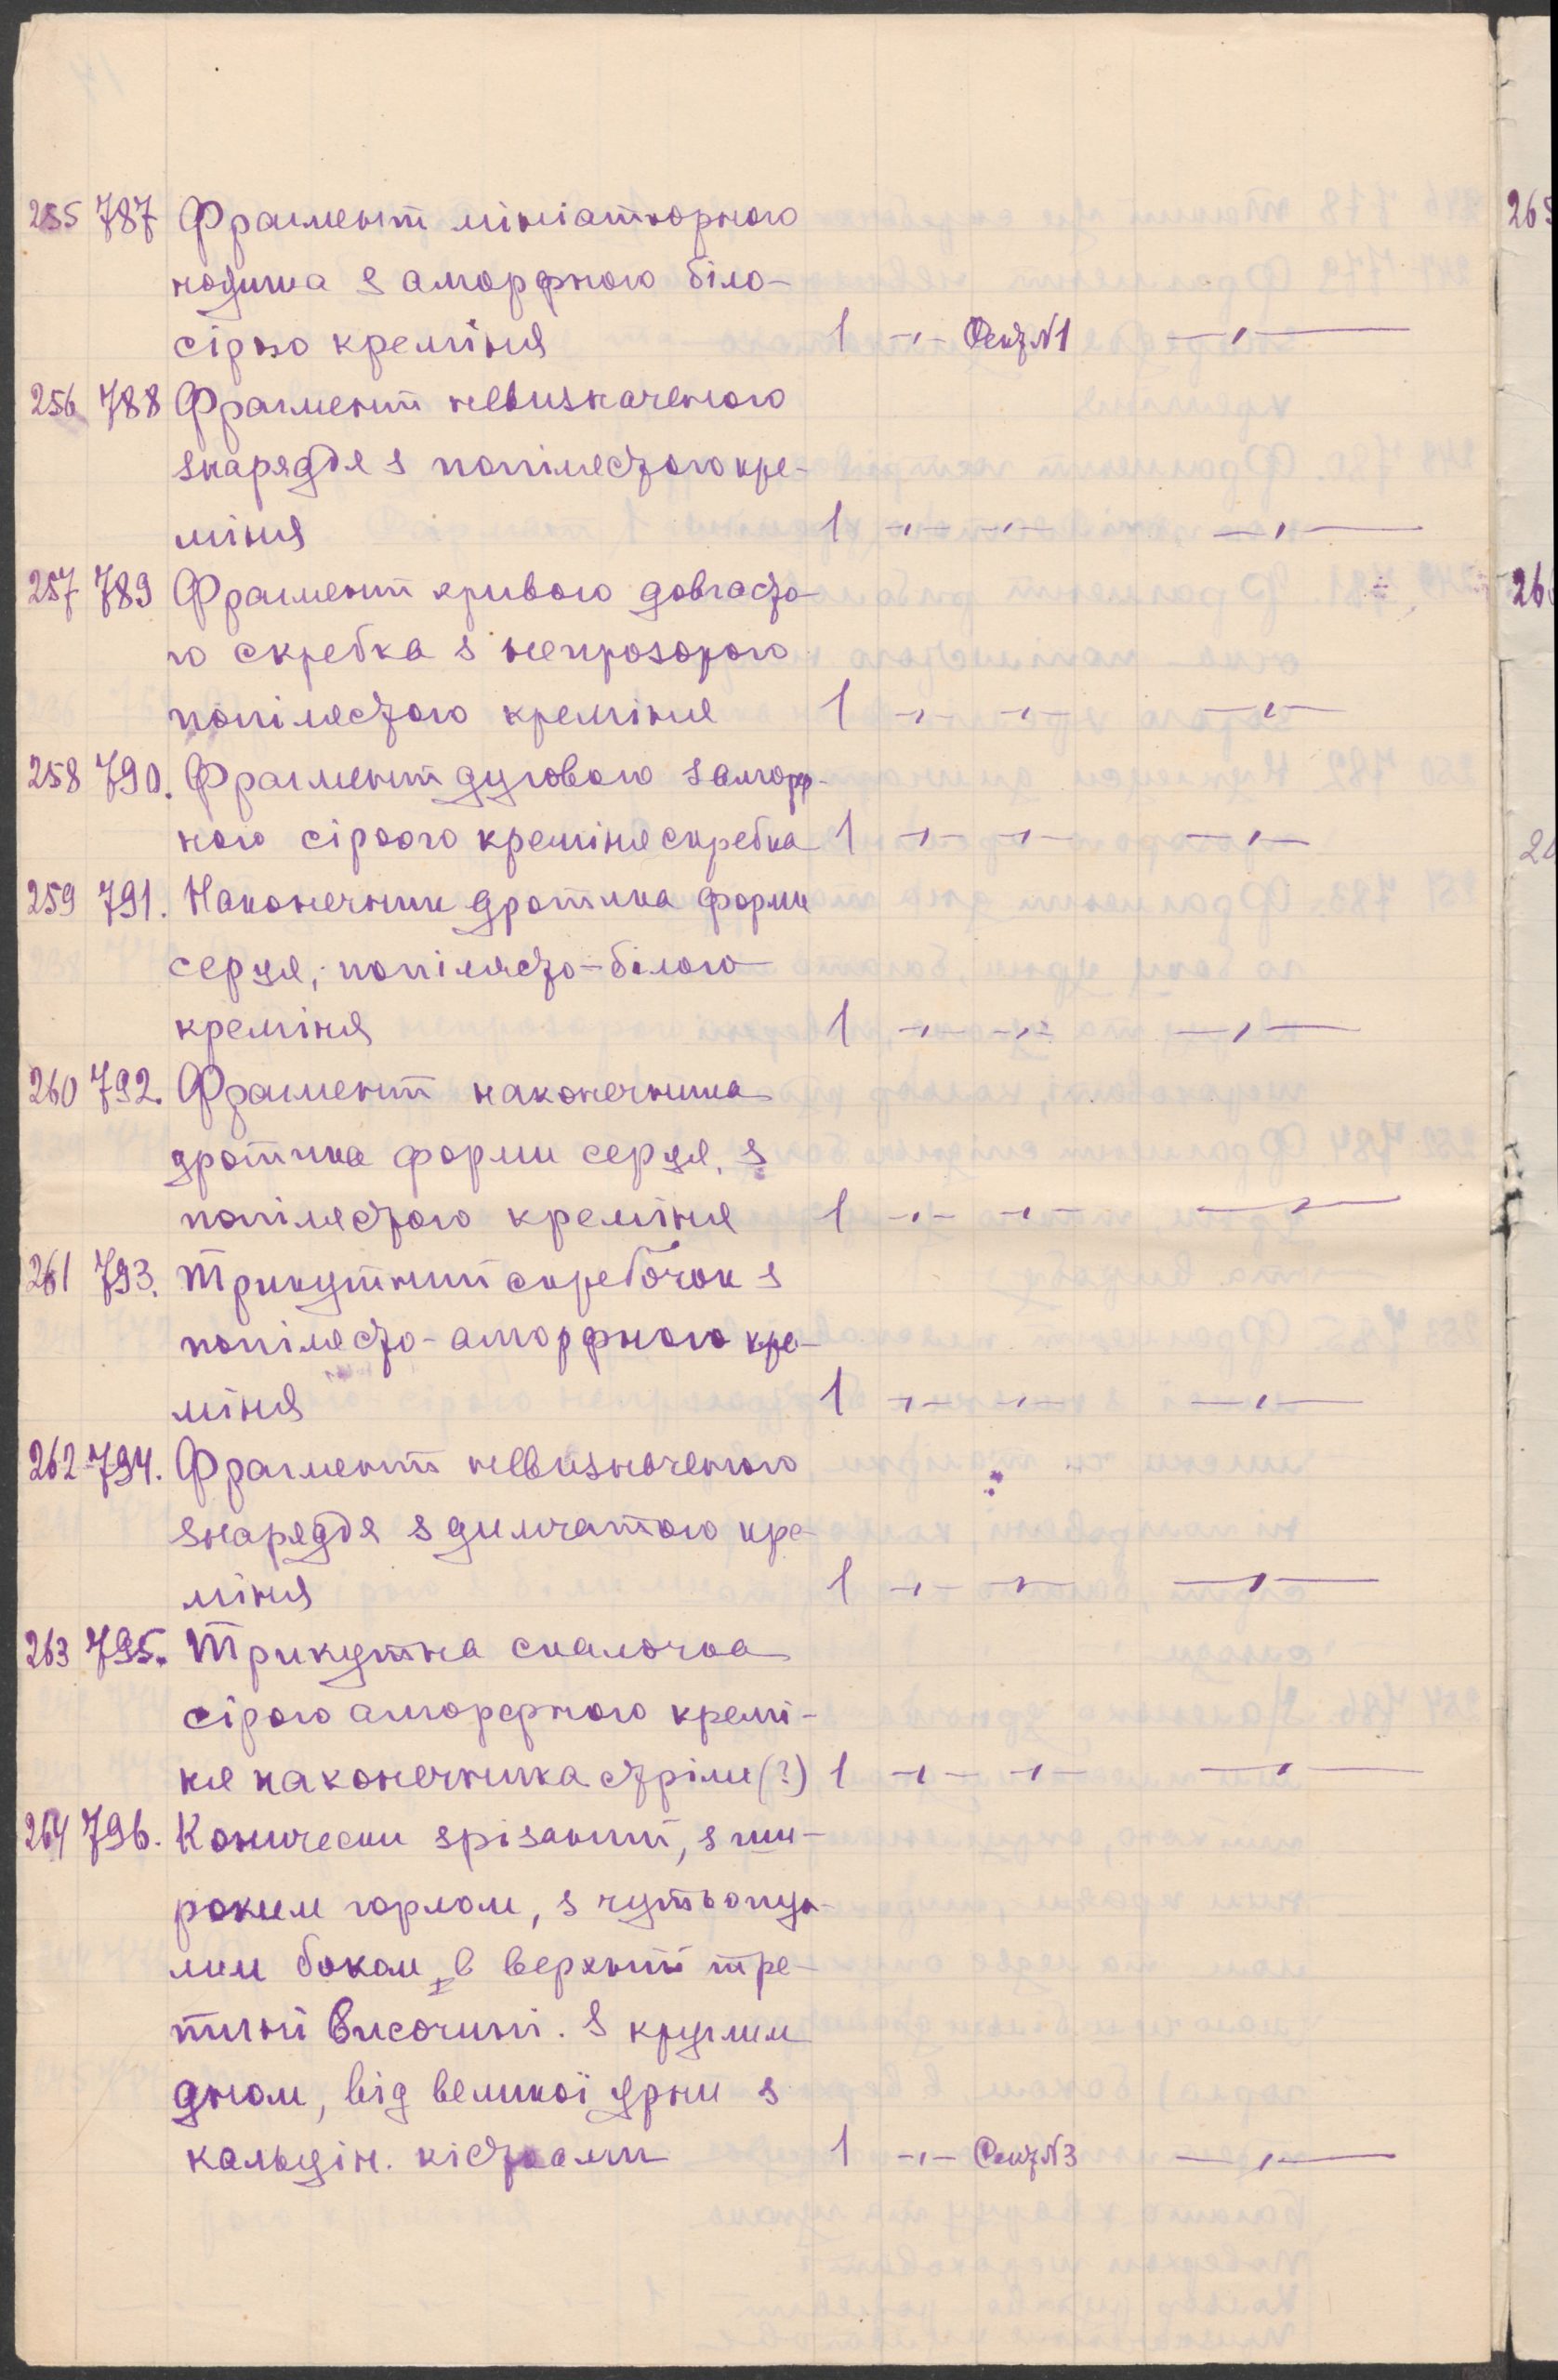 255 787 Фрагмент мініатюрного
ножика з аморфного біло-
сірого кремня 1 -"- Секц №1 -"-
256 788 Фрагмент невизначеного
знаряддя з попілястого кре-
міня 1 -"- -"- -"-
257 789 Фрагмент кривого довгасто-
го скребка з непрозорого
попілястого креміня 1 -"- -"- -"-
258 790. Фрагмент дугового з аморф-
ного сірого креміня скребка 1 -"- -"- -"-
259 791. Наконечник дротика форми
серця, попілясто-білого
креміня 1 -"- -"- -"-
260 792. Фрагмент наконечника
дротика форми серця, з
попілястого креміня 1 -"- -"- -"-
261 793. Трикутний скребочок з
попілясто-аморфного кре-
міня 1 -"- -"- -"-
262 794. Фрагмент невизначеного
знаряддя з димчатого кре-
міня 1 -"- -"- -"-
263 795. Трикутна скалочка
сірого аморфного кремі-
ня наконечника стріли (?) 1 -"- -"- -"-
264 796. Конически зрізаний, з ши-
роким горлом, з чуть опук-
лим боком в верхній тре-
тині височині. З круглим
дном, від великої урни з
кальцін. кістками 1 -"- Секц №3 -"-